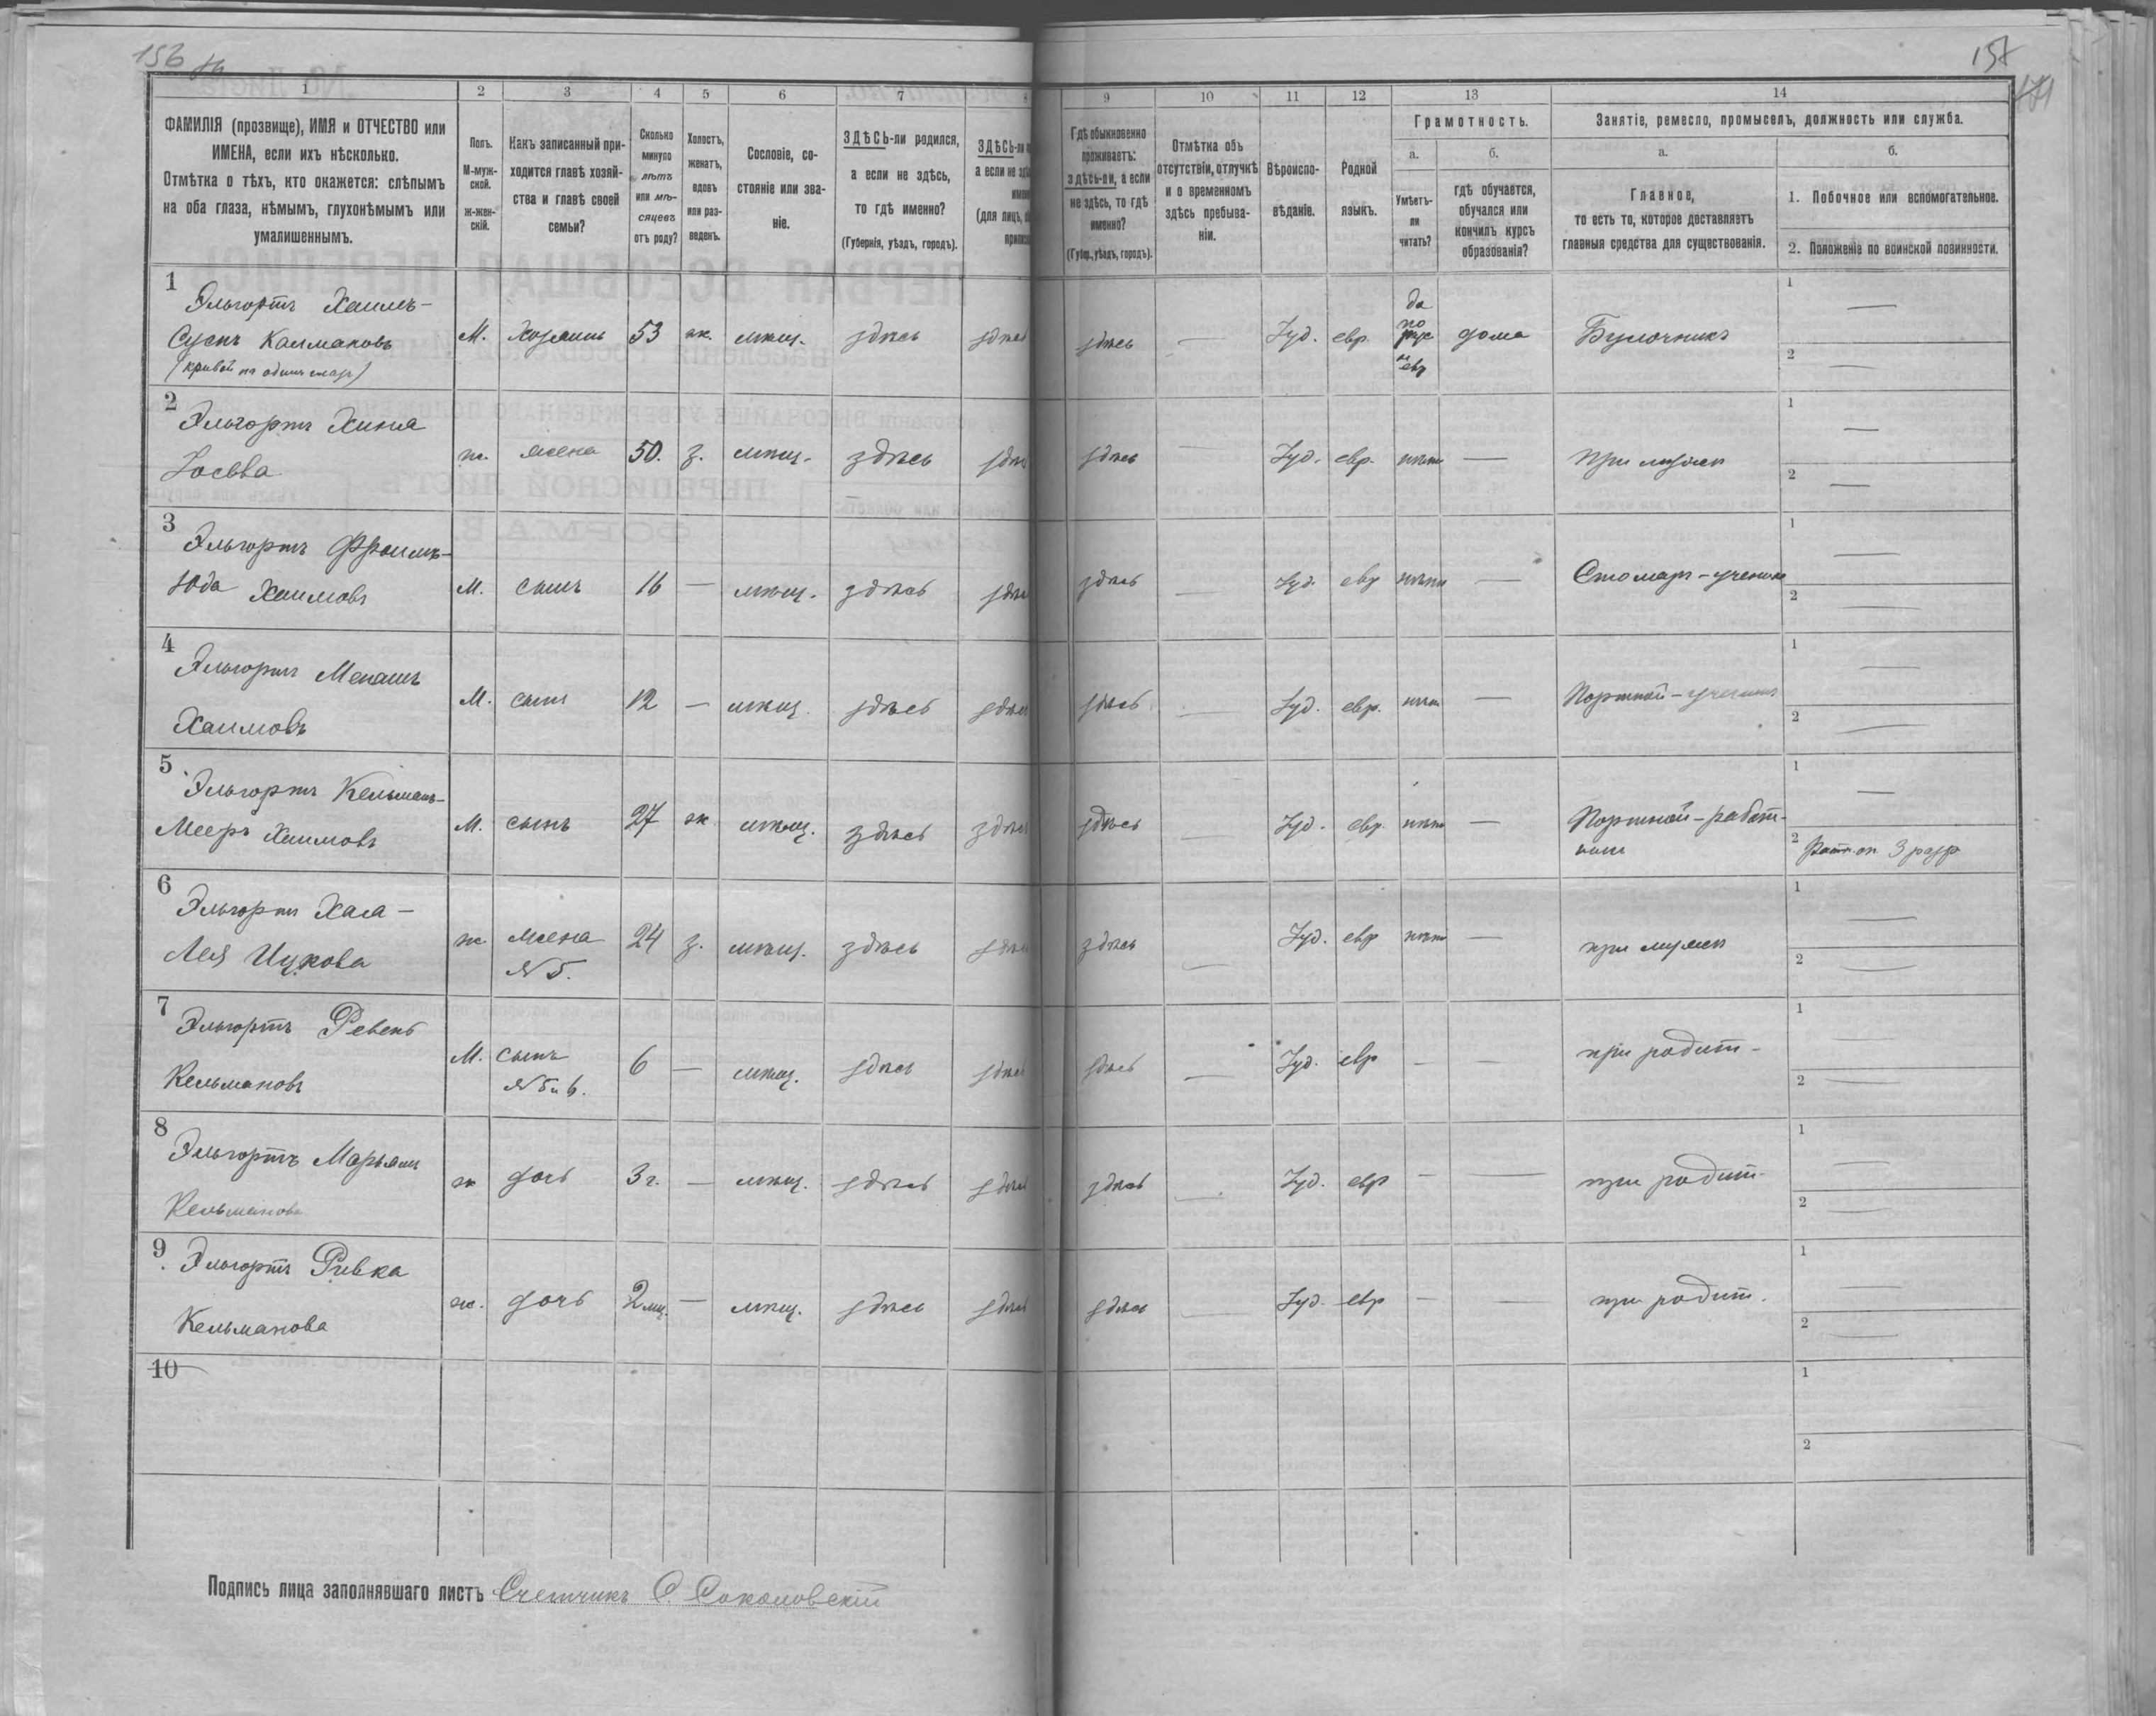 156
157
1 2 3 4 5 6 7 8 9 10 11 12 13 14
ФАМИЛІЯ (прозвище), ИМЯ и ОТЧЕСТВО или
ИМЕНА, если ихъ нѣсколько.
Отмѣтка о тѣхъ, кто окажется: слѣпымъ
на оба глаза, нѣмымъ, глухонѣмымъ или
умалишеннымъ.
Полъ.
М-муж-
ской.
Ж-жен-
скій.
Какъ записанный при-
ходится главѣ хозяй-
ства и главѣ своей
семьи?
Сколько
минуло
лѣтъ
или мѣ-
сяцевъ
отъ роду?
Холостъ,
женатъ,
вдовъ
или раз-
веденъ.
Сословіе, со-
стояніе или зва-
ніе.
ЗДѢСЬ-ли родился,
а если не здѣсь,
то гдѣ именно?
(Губернія, уѣздъ, городъ).
ЗДѢСЬ-ли
а если не
(для лицъ,
Гдѣ обыкновенно
проживаетъ:
здѣсь-ли, а если
не здѣсь, то гдѣ
именно?
(Губер., уѣздъ, городъ).
Отмѣтка объ
отсутствіи, отлучкѣ
и о временномъ
здѣсь пребыва-
ніи.
Вѣроиспо-
вѣданіе.
Родной
языкъ.
Грамотность.
а.
Умѣетъ-
ли
читать?
б.
гдѣ обучается,
обучался или
кончилъ курсъ
образованія?
Занятіе, ремесло, промыселъ, должность или служба.
а.
Главное,
то есть то, которое доставляетъ
главныя средства для существованія.
б.
1. Побочное или вспомогательное.
2. Положеніе по воинской повинности.
1
Эльгортъ Хаимъ-
Сусъ Калмановъ
(кривой на одинъ глазъ)
М. Хозяинъ 53 ж. мѣщ. здѣсь здѣсь здѣсь — Іуд. евр. да по дома Булочникъ 1 — 2 —
2
Эльгортъ Хиния
Іосева
ж. жена 50. з. мѣщ. здѣсь здѣсь здѣсь — Іуд. евр. нѣтъ — при мужѣ 1 — 2 —
3
Эльгортъ Фроимъ-
Юда Хаимовъ
М. сынъ 16 — мѣщ. здѣсь здѣсь здѣсь — Іуд. евр нѣтъ — Столяръ-ученикъ 1 — 2 —
4
Эльгортъ Менашъ
Хаимовъ
М. сынъ 12 — мѣщ. здѣсь здѣсь здѣсь — Іуд. евр. нѣтъ — Портной-ученикъ 1 — 2 —
5
Эльгортъ Кельманъ-
Мееръ Хаимовъ
М. сынъ 27 ж мѣщ. здѣсь здѣсь здѣсь — Іуд. евр. нѣтъ — Портной-работ-
никъ 1 — 2 Ратн. оп. 3 разр
6
Эльгортъ Хая-
Лея Ицкова
ж. жена
№ 5. 24 з. мѣщ. здѣсь здѣсь здѣсь — Іуд. евр нѣтъ — при мужѣ 1 — 2 —
7
Эльгортъ Ревенъ
Кельмановъ
М. сынъ
№ 5 и 6. 6 — мѣщ. здѣсь здѣсь здѣсь — Іуд. евр — — при родит- 1 — 2 —
8
Эльгортъ Марьямъ
Кельманова
ж дочь 3 г. — мѣщ. здѣсь здѣсь здѣсь — Іуд. евр — — при родит- 1 — 2 —
9
Эльгортъ Ривка
Кельманова
ж. дочь 2 мц. — мѣщ. здѣсь здѣсь здѣсь — Іуд. евр — — при родит. 1 — 2 —
10
1
2
Подпись лица заполнявшаго листъ Счетчикъ С. Соколовскій